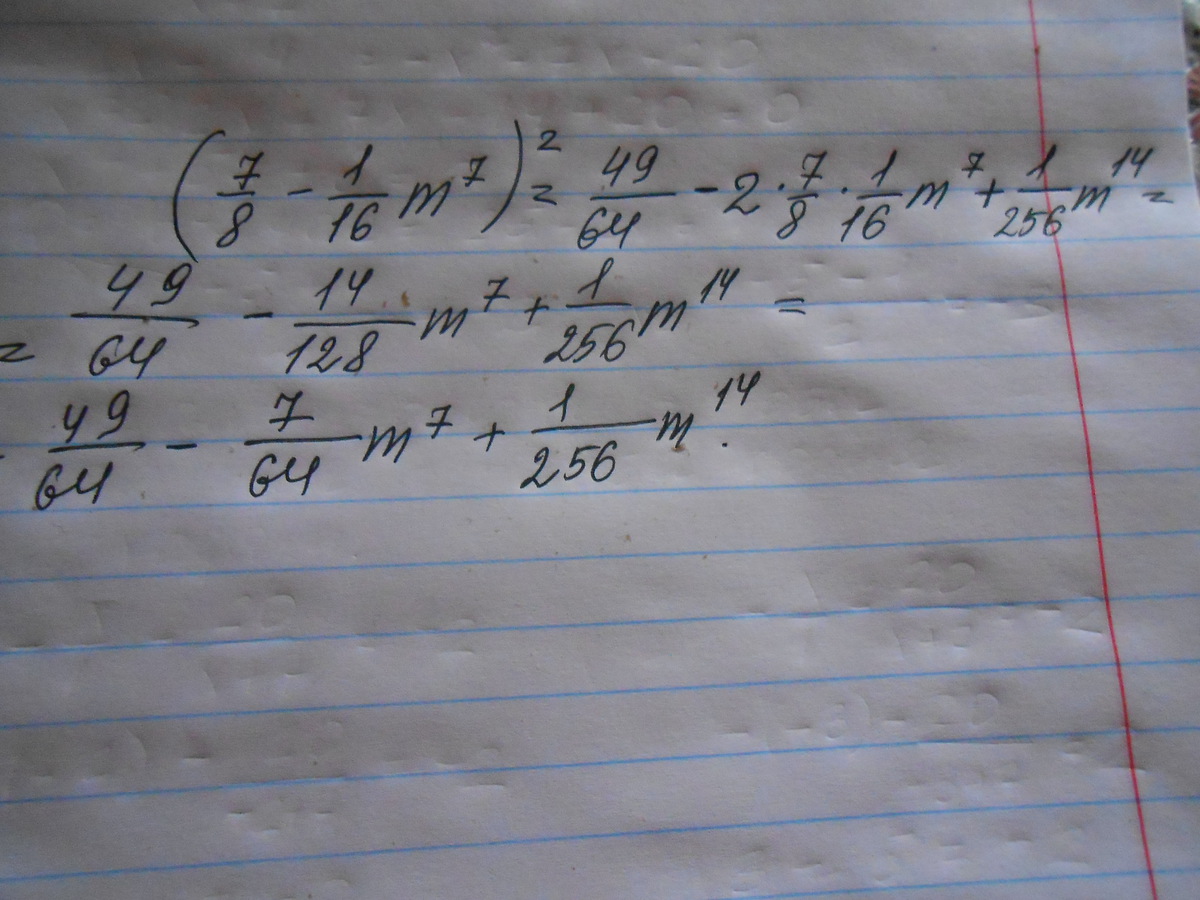 (7/8 - 1/16 m^7)^2 = 49/64 - 2 · 7/8 · 1/16 m^7 + 1/256 m^14 =
= 49/64 - 14/128 m^7 + 1/256 m^14 =
49/64 - 7/64 m^7 + 1/256 m^14.